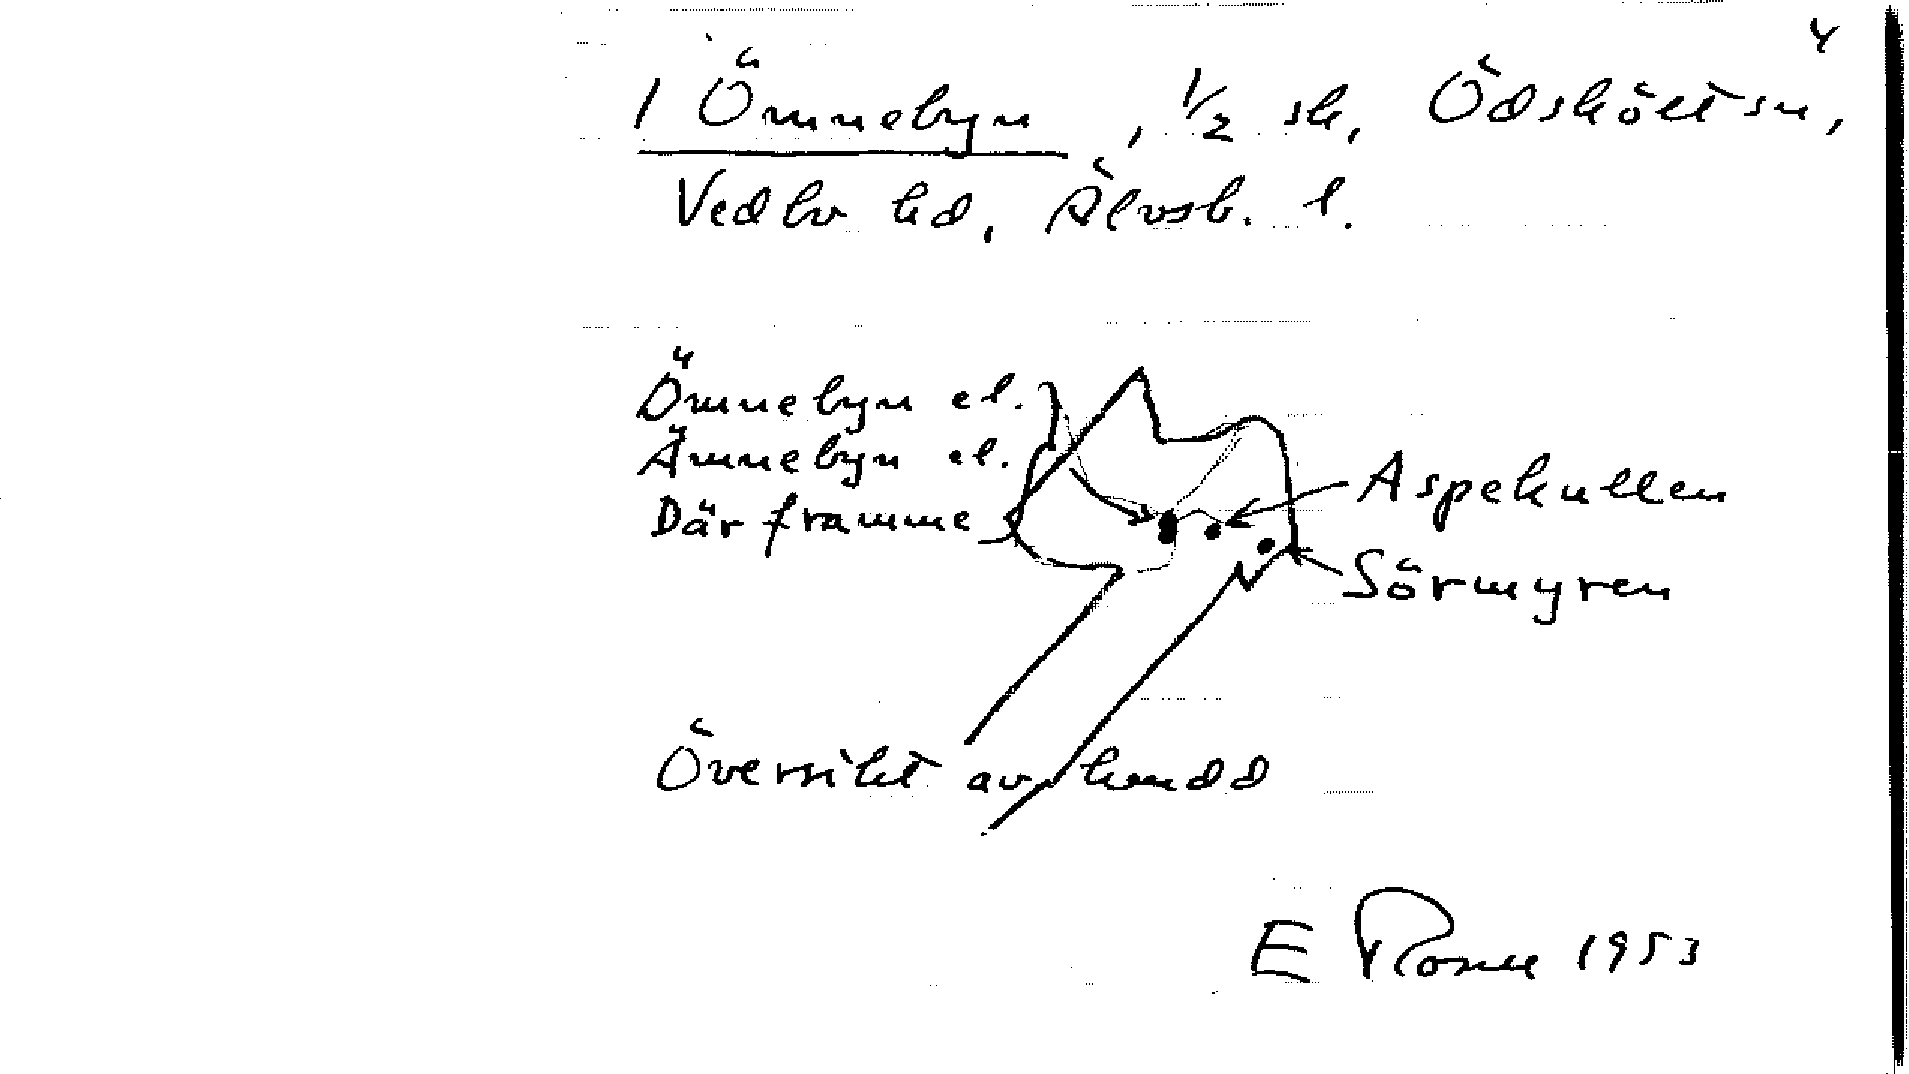 4
1 Ömnebyn, 1/2 sk, Ödsköltsn,
Vedbo hd, Älvsb. l.
Ömnebyn el.
Ämnebyn el.
Där framme
Aspekullen
Sörmyren
Översikt av
E 1953